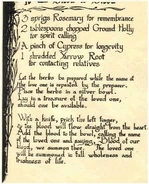 3 sprigs Rosemary for remembrance
2 tablespoons chopped Ground Holly
for spirit calling
A pinch of Cypress for longevity
1 shredded Yarrow Root
for contacting relatives
Let the herbs be prepared while the name of
the love one is repeated by the preparer.
Place the herbs in a silver bowl.
in a treasure of the loved one,
should one be available.
With a knife, prick the left finger,
so the blood will flow straight from the heart.
Add the blood to the bowl, calling the name
of the loved one and
Blood of our
blood, we summon thee. The loved one
will be summoned in full wholeness and
briskness of life.